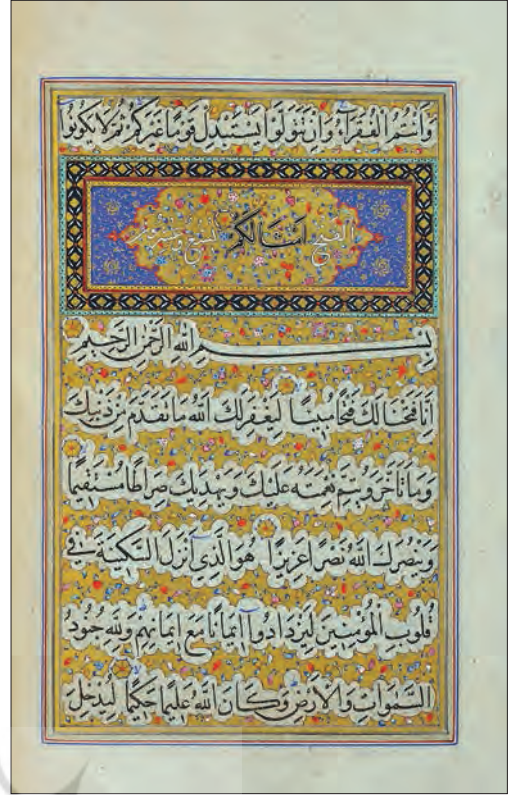 وَأَنْتُمُ الْفُقَرَآءُ وَاِنْ تَتَوَلَّوْا يَسْتَبْدِلْ قَوْمًا غَيْرَكُمْ ثُمَّ لَا يَكُونُوا
الفتح اَمْثَالَكُمْ تسع وعشرون
بِسْمِ اللّٰهِ الرَّحْمٰنِ الرَّحِيمِ
اِنَّا فَتَحْنَا لَكَ فَتْحًا مُبِينًا لِيَغْفِرَ لَكَ اللّٰهُ مَا تَقَدَّمَ مِنْ ذَنْبِكَ
وَمَا تَأَخَّرَ وَيُتِمَّ نِعْمَتَهُ عَلَيْكَ وَيَهْدِيَكَ صِرَاطًا مُسْتَقِيمًا
وَيَنْصُرَكَ اللّٰهُ نَصْرًا عَزِيزًا هُوَ الَّذِي اَنْزَلَ السَّكِينَةَ فِي
قُلُوبِ الْمُؤْمِنِينَ لِيَزْدَادُوا اِيمَانًا مَعَ اِيمَانِهِمْ وَلِلّٰهِ جُنُودُ
السَّمٰوَاتِ وَالْاَرْضِ وَكَانَ اللّٰهُ عَلِيمًا حَكِيمًا لِيُدْخِلَ